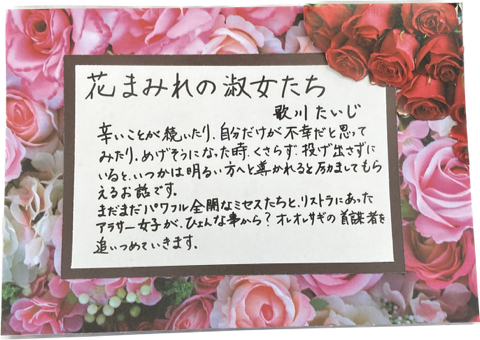 花まみれの淑女たち
歌川たいじ
辛いことが続いたり、自分だけが不幸だと思って
みたり、めげそうになった時、くさらず、投げ出さずに
いると、いつかは明るい方へと導かれると励ましてもら
えるお話です。
まだまだパワフル全開なミセスたちと、リストラにあった
アラサー女子が、ひょんな事から?オレオレサギの首謀者を
追いつめていきます。